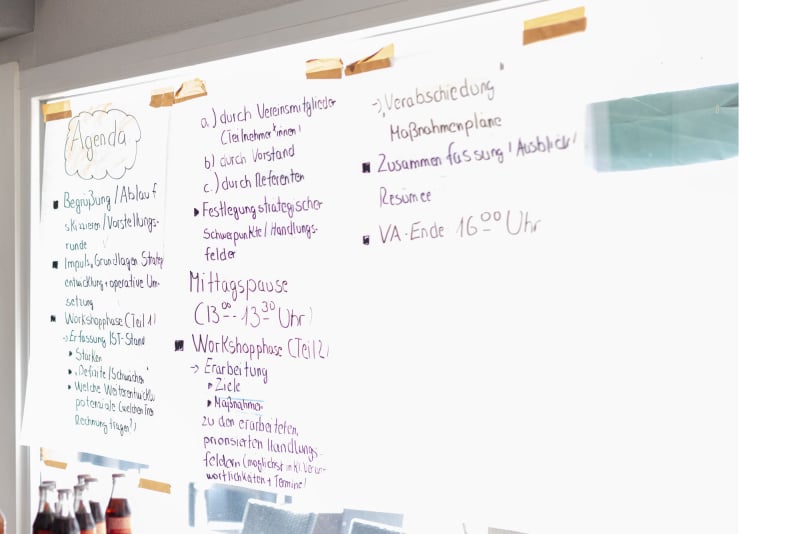 Agenda
Begrüßung / Ablauf
skizzieren / Vorstellungs-
runde
Impuls, Grundlagen Strategie
entwicklung + operative Um-
setzung
Workshopphase (Teil 1)
-> Erfassung IST-Stand
Stärken
"Definite / Schwächen"
Welche Weiterentwickl
potenziale (welchen
Rechnung tragen?)
a.) durch Vereinsmitglieder
(Teilnehmer*innen)
b) durch Vorstand
c.) durch Referenten
Festlegung strategischer
Schwerpunkte / Handlungs-
felder
Mittagspause
(13 00 - 13 30 Uhr)
Workshopphase (Teil 2)
-> Erarbeitung
Ziele
Maßnahmen
zu den erarbeiteten,
priorisierten Handlungs-
feldern (möglichst inkl. Verant-
wortlichkäten + Termine)
-> Verabschiedung
Maßnahmenpläne
Zusammenfassung / Ausblick /
Resümee
VA-Ende 16 00 Uhr